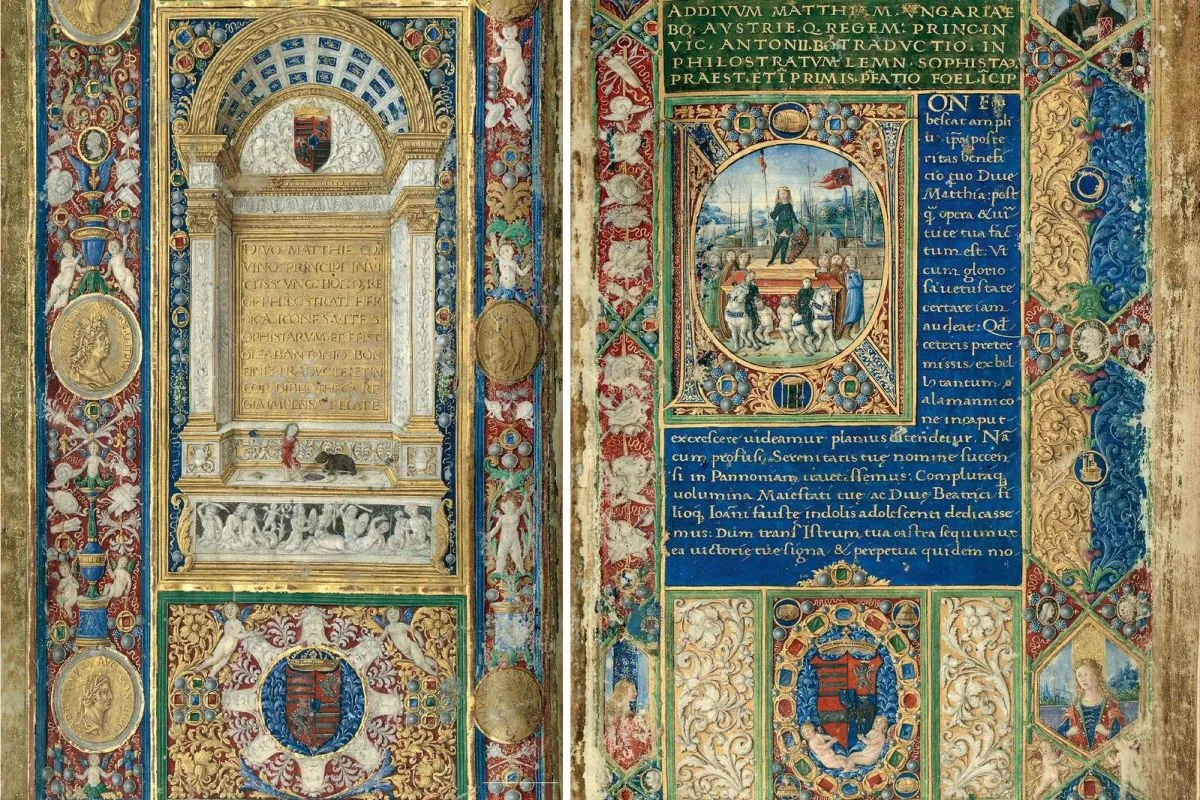 DIVO MATTHIE CO
VINO PRINCIPI INVI
CTISS
SOPHISTARVM ET EPIST
OLE AB ANTONIO BON
FINE TRADVCTE ET IN
COR BIBLIOTHECA RE
GIA
AD DIVVM MATTHIAM VNGARIAE
BO. AVSTRIE.Q. REGEM: PRINC.IN
VIC. ANTONII.BŌ TRADVCTIO. IN
PHILOSTRATVM LEMN. SOPHISTA
PRAEST. ET Ī PRIMIS. PFATIO FOEL. ĪCIP
ON E
bescat ampli
u ip̄a poste
ritas benefi
cio quo Diue
Matthia: post
q̄ opera & ui
tute tua fac
tum est: Vt
cum glorio
sa uetustate
certare iam
audeat: Qd
ceteris preter
missis, ex bel
lo tantum
alamannico
ne in caput
excrescere uideamur planius ostendetur. Nā
cum profusi, Serenitatis tuę nomine succen
si in Pannoniam traiecissemus: Compluraq
uolumina Maiestati tue ac Diuę Beatrici fi
lioq Ioāni fauste indolis adolescenti dedicasse
mus: Dum trans Istrum tua castra sequimur
ea uictorie tue signa & perpetua quidem mo